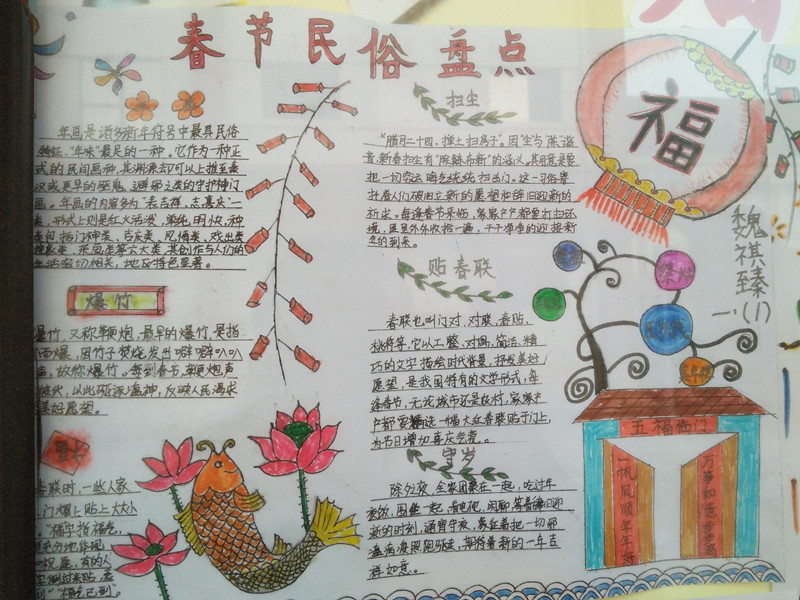 春节民俗盘点
年画是诸多新年符号中最具民俗
特征、"年味"最足的一种。它作为一种正
式的民间画种,其渊源却可以上推至
次或更早的 避邪之类的守护神门
画。年画的内容多为"表吉祥,志喜庆"一
类,形式上则是红火活泼,单纯明快,种
类包括门神类、吉庆类、风情类、戏出类
其创作与人们的
生活密切相关,地区特色显著。
爆竹
爆竹,又称鞭炮,最早的爆竹,是指
而爆,因竹子焚烧发出噼噼叭叭
声,故称爆竹。每到春节,鞭炮声
以此驱逐瘟神,反映人民渴求
美好愿望。
春联时,一些人家
门楣上贴上大大小
"福"字指福气,
有的人
"福气已到"。
扫尘
"腊月二十四,掸土扫房子"。因"尘"与"陈"谐
音,新春扫尘有"除陈布新"的涵义。其用意是要
把一切穷运晦气统统扫出门。这一习俗寄
托着人们破旧立新的愿望和辞旧迎新的
祈求。每逢春节来临,家家户户都要打扫环
境,里里外外收拾一遍,干干净净的迎接新
春的到来。
贴春联
春联也叫门对、对联、春贴、
桃符等,它以工整、对偶、简洁、精
巧的文字描绘时代背景,抒发美好
愿望,是我国特有的文学形式,每
逢春节,无论城市还是农村,家家户
户都要挑选一幅大红春联贴于门上,
为节日增加喜庆气氛。
守岁
除夕夜,全家团聚在一起,吃过年
夜饭,围坐一起,看电视,闲聊,等着辞旧迎
新的时刻,通宵守夜,象征着把一切邪
瘟病疫照跑驱走,期待着新的一年吉
祥如意。
福
魏祺臻
一.(1)
五福临门
一帆风顺年年好
万事如意步步高